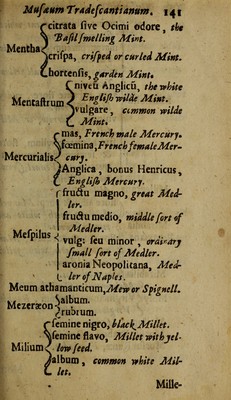 Musæum Tradescantianum. 141
citrata sive Ocimi odore, the
Basil smelling Mint.
Mentha
crispa, crisped or curled Mint.
hortensis, garden Mint.
niveũ Anglicũ, the white
English wilde Mint.
Mentastrum
vulgare, common wilde
Mint.
mas, French male Mercury.
fœmina, French female Mer-
cury.
Mercurialis
Anglica, bonus Henricus,
English Mercury.
fructu magno, great Med-
ler.
fructu medio, middle sort of
Medler.
Mespilus
vulg: seu minor, ordinary
small sort of Medler.
aronia Neopolitana, Med-
ler of Naples.
Meum athamanticum, Mew or Spignell.
album.
Mezeræon
rubrum.
semine nigro, black Millet.
semine flavo, Millet with yel-
low seed.
Milium
album, common white Mil-
let.
Mille-